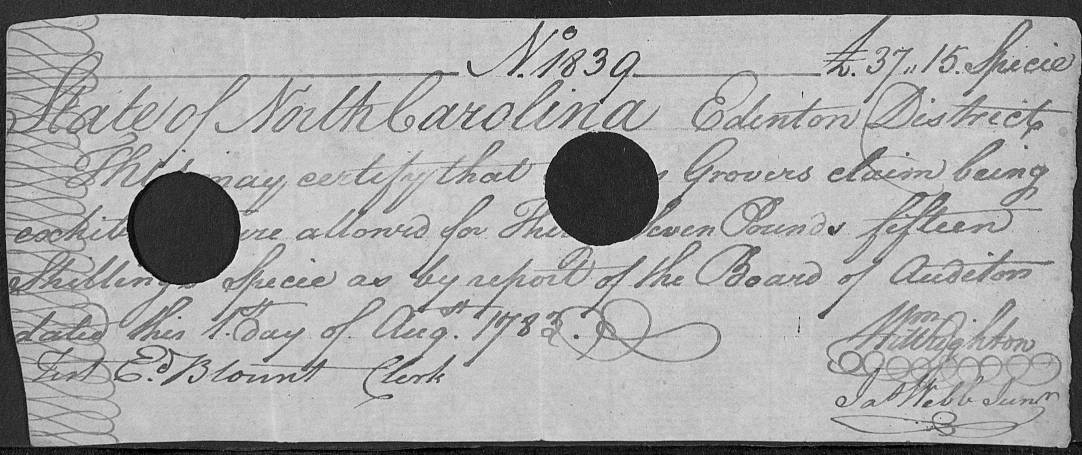 No. 1839 £. 37,, 15. Specie
State of North Carolina Edenton District
This may certify that Grovers claim being
exhib re allow'd for Thi Seven Pounds fifteen
Shillings Specie as by report of the Board of Auditors
dated this 1st day of Augst. 178
Test Ed. Blount Clerk
Wm
Jas Webb Junr